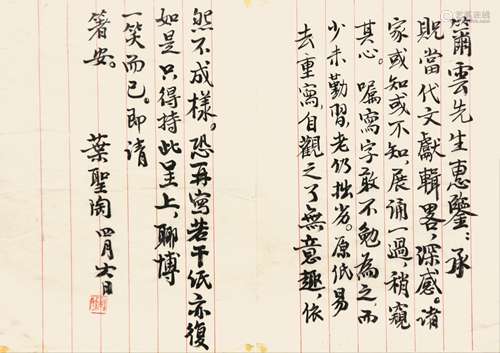 簫雲先生惠鑒：承
貺當代文獻輯畧，深感。諸
家或知或不知，展誦一過，稍窺
其心。囑寫字敢不勉為之，而
少未勤習，老仍拙劣。原紙易
去重寫，自觀之了無意趣，依
然不成樣。恐再寫若干紙亦復
如是，只得持此呈上，聊博
一笑而已。即請
箸安。
葉聖陶 四月六日